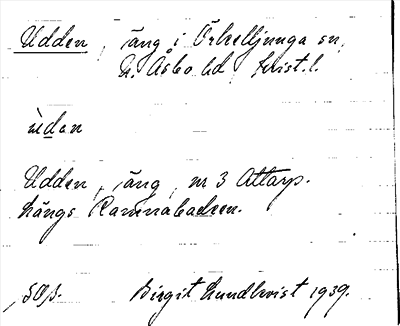 Udden, äng i Örkelljunga sn,
N. Åsbo hd, Krist. l.
ùdan
Udden, äng, nr 3 Attarp.
Längs Ramnabacken.
Birgit Lundkvist 1939.